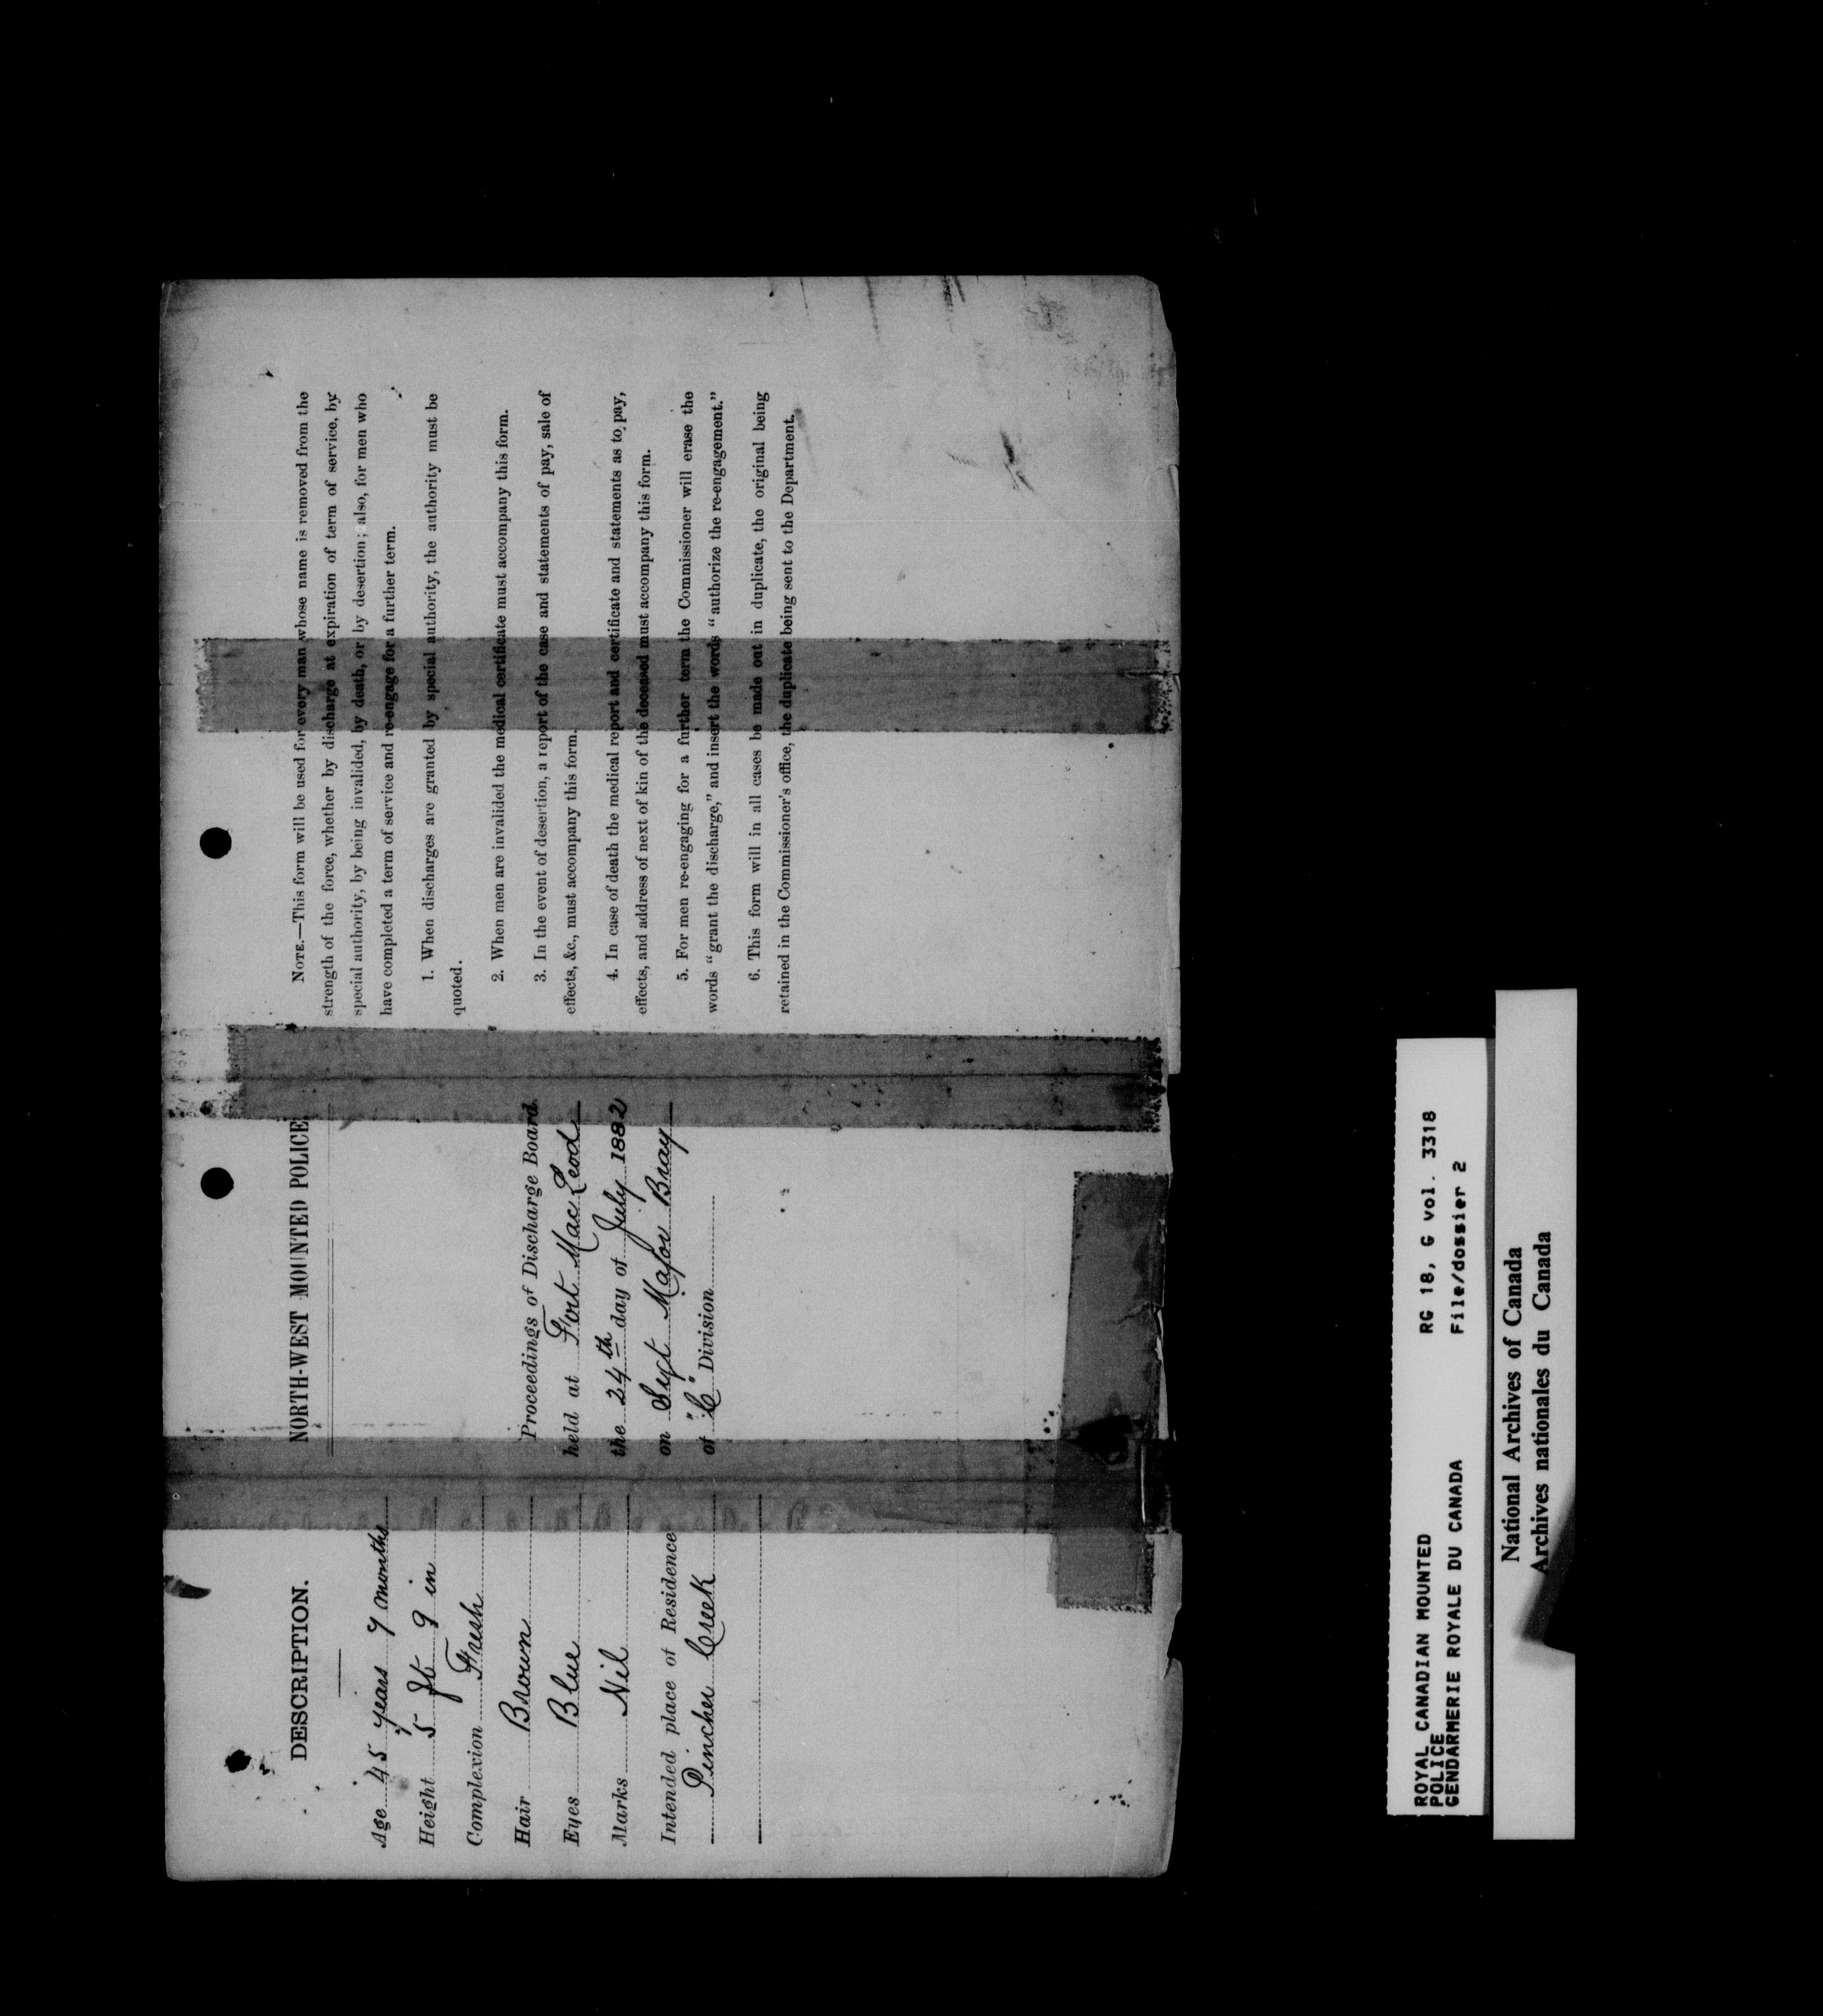 DESCRIPTION.
Age 45 years 7 months
Height 5 ft 9 in
Complexion Fresh
Hair Brown
Eyes Blue
Marks Nil
Intended place of Residence
Pincher Creek
NORTH-WEST MOUNTED POLICE
Proceedings of Discharge Board
held at Fort MacLeod
the 24th day of July 1882
on Sergt Major Bray
of "C" Division
NOTE.—This form will be used for every man whose name is removed from the
strength of the force, whether by discharge at expiration of term of service, by
special authority, by being invalided, by death, or by desertion; also, for men who
have completed a term of service and re-engage for a further term.
1. When discharges are granted by special authority, the authority must be
quoted.
2. When men are invalided the medical certificate must accompany this form.
3. In the event of desertion, a report of the case and statements of pay, sale of
effects, &c., must accompany this form.
4. In case of death the medical report and certificate and statements as to pay,
effects, and address of next of kin of the deceased must accompany this form.
5. For men re-engaging for a further term the Commissioner will erase the
words "grant the discharge," and insert the words "authorize the re-engagement."
6. This form will in all cases be made out in duplicate, the original being
retained in the Commissioner's office, the duplicate being sent to the Department.
ROYAL CANADIAN MOUNTED RG 18, G vol. 3318
POLICE
GENDARMERIE ROYALE DU CANADA File/dossier 2
National Archives of Canada
Archives nationales du Canada